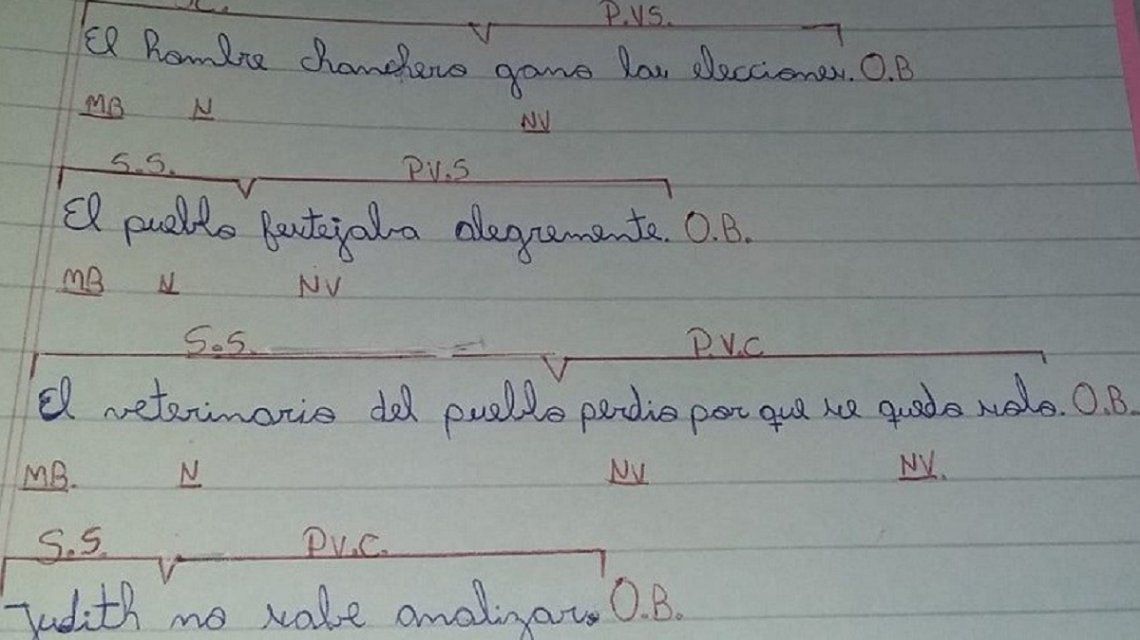 P.VS.
El hombre chanchero gano las elecciones. O.B
MB N NV
S.S. P.V.S
El pueblo festejaba alegremente. O.B.
MB N NV
S.S. P.V.C
El veterinario del pueblo perdio por que se quedo solo. O.B.
MB. N NV NV.
S.S. P.V.C.
Judith no sabe analizar. O.B.